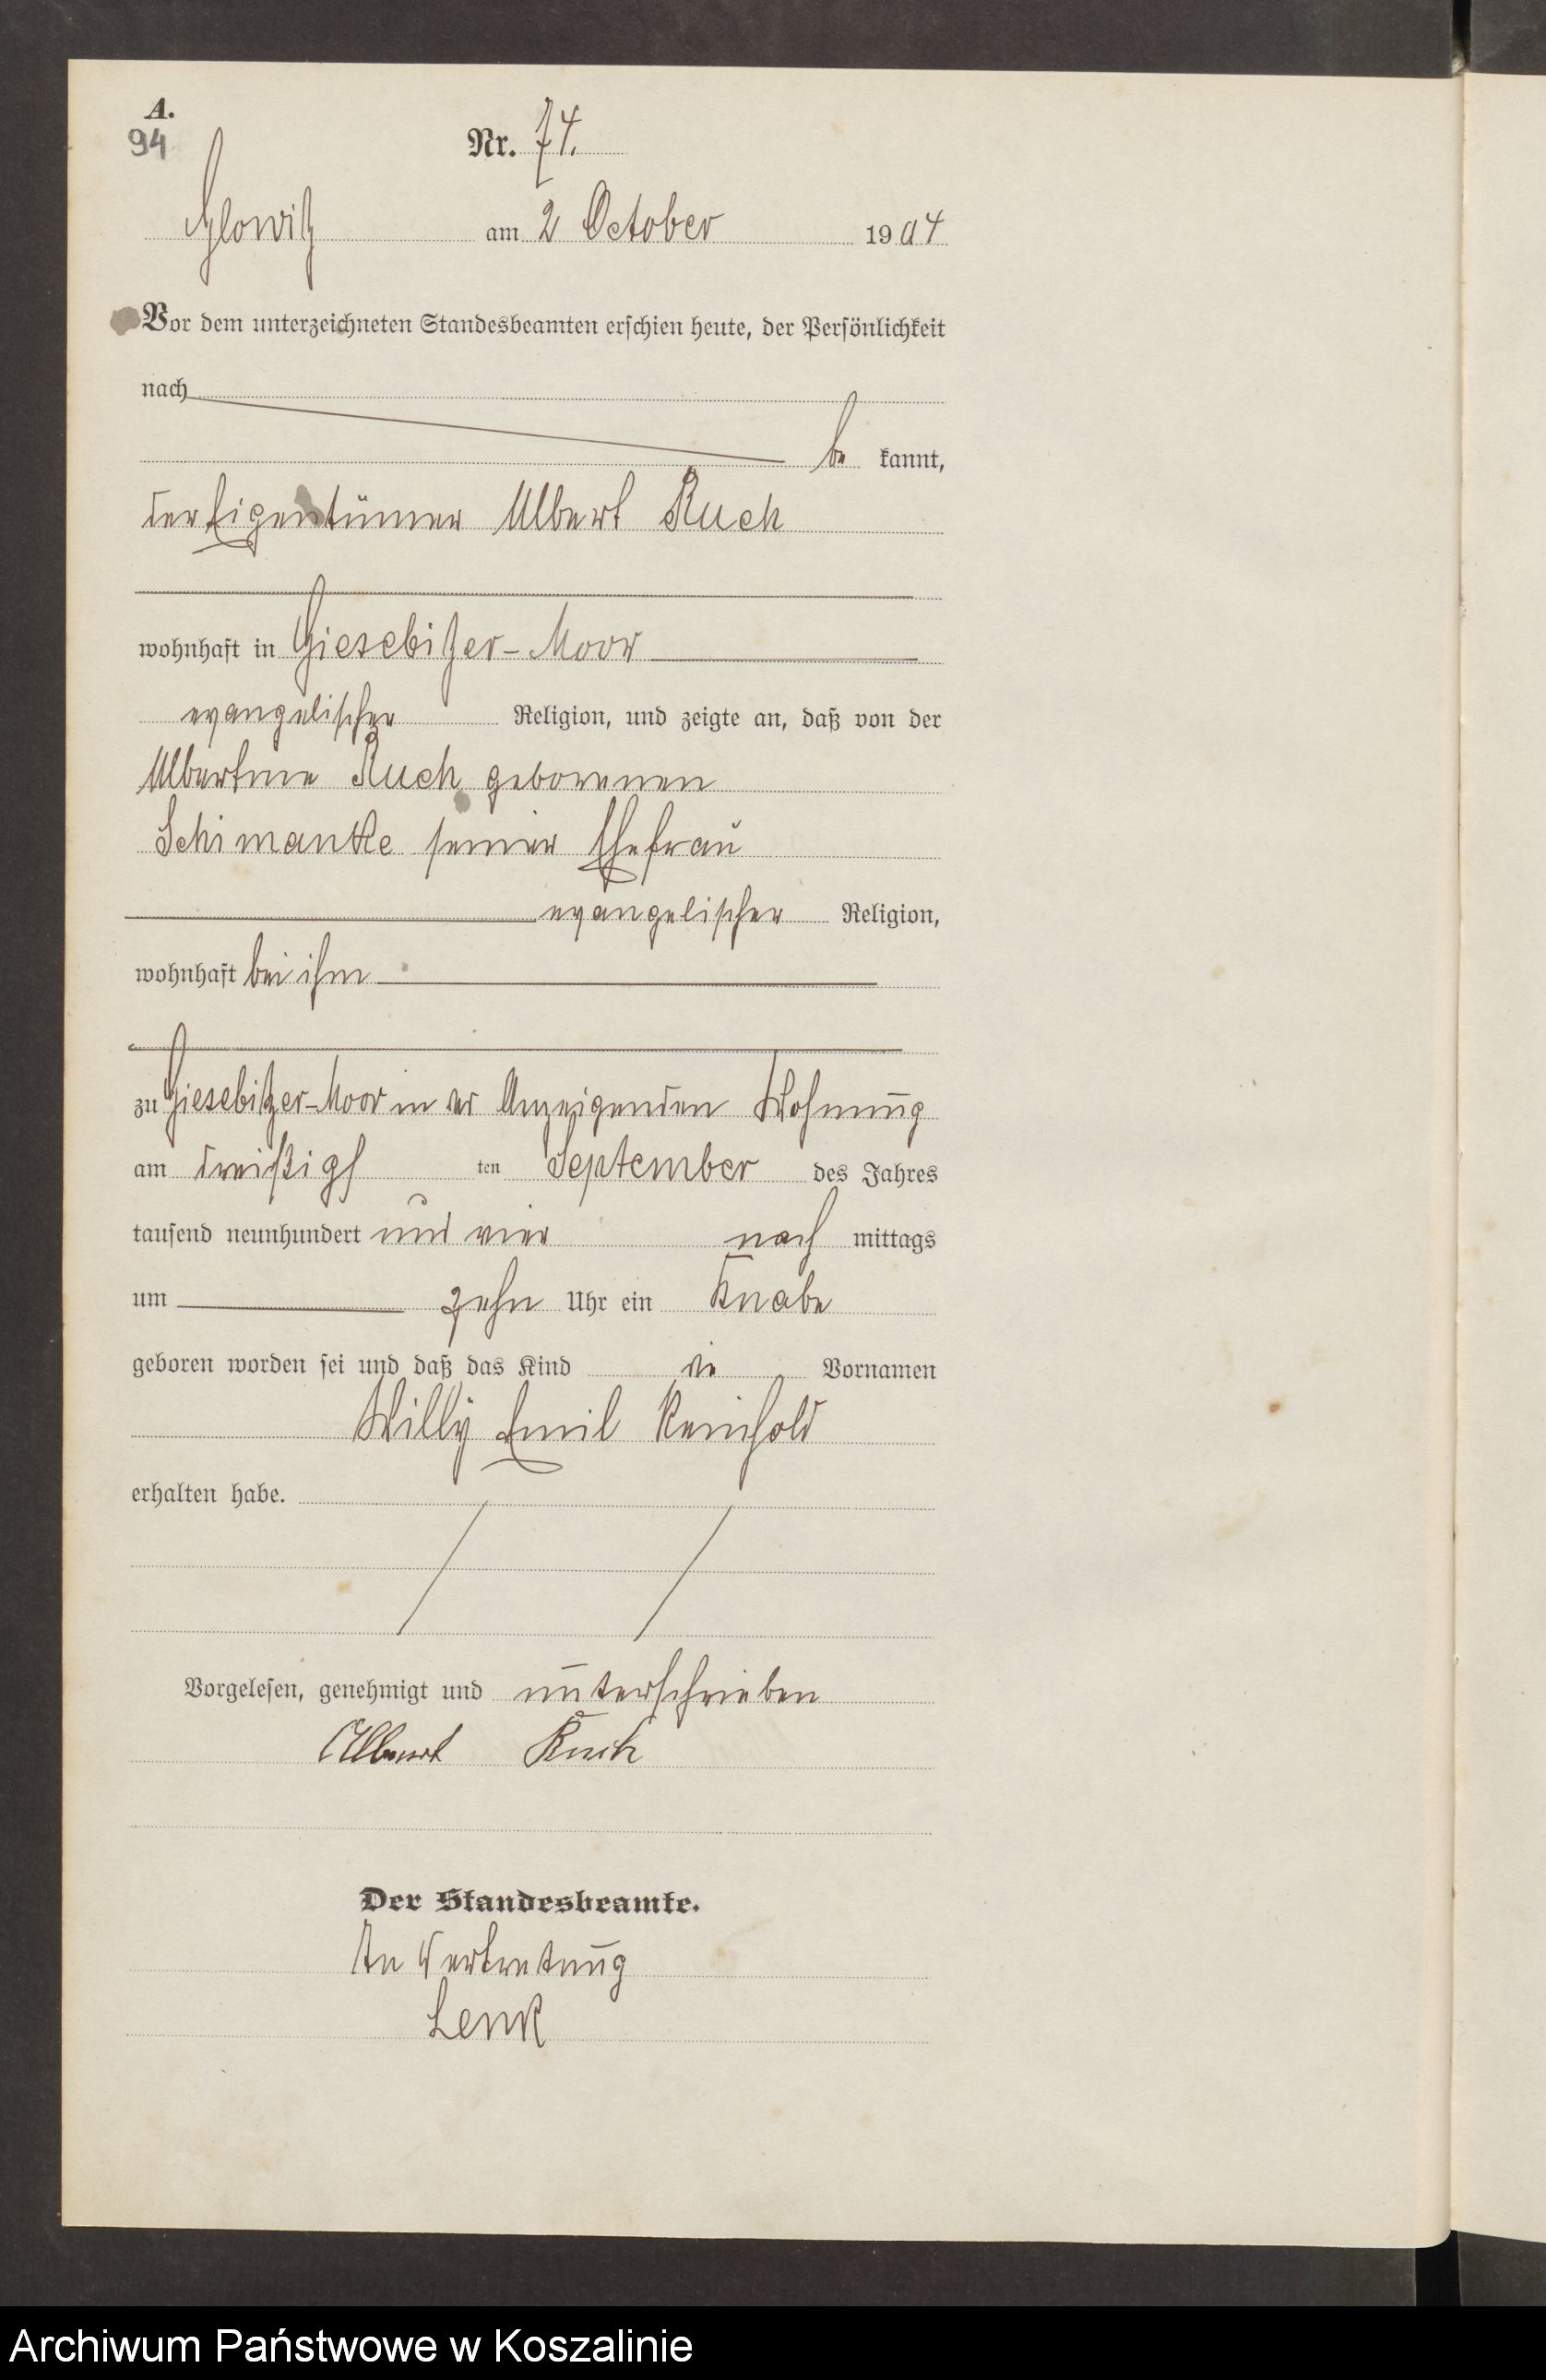 A.
94
Nr. 74.
Glowitz am 2 October 1904
Vor dem unterzeichneten Standesbeamten erschien heute, der Persönlichkeit
nach
be kannt,
der Eigentümer Albert Ruch
wohnhaft in Giesebitzer-Moor
evangelischer Religion, und zeigte an, daß von der
Albertine Ruch geborenen
Schimanke seiner Ehefrau
evangelischer Religion,
wohnhaft bei ihm
zu Giesebitzer-Moor in der Anzeigenden Wohnung
am dreißigs ten September des Jahres
tausend neunhundert und vier nach mittags
um zehn Uhr ein Knabe
geboren worden sei und daß das Kind die Vornamen
Willy Emil Reinhold
erhalten habe.
Vorgelesen, genehmigt und unterschrieben
Albert Ruch
Der Standesbeamte.
In Vertretung
Lenk
Archiwum Państwowe w Koszalinie